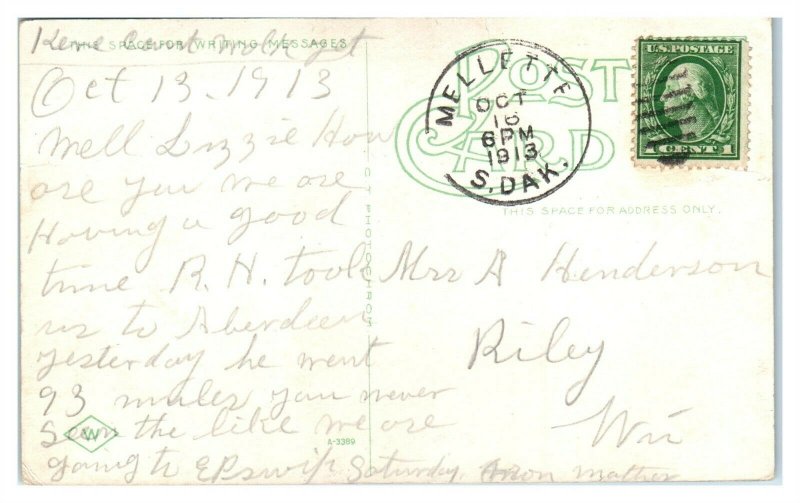 THIS SPACE FOR WRITING MESSAGES
Oct 13. 1913
Well Lizzie How
are you we are
Having a good
time R. H. took
us to Aberdeen
yesterday he went
93 miles you never
Seen the like we are
going to Saturday. mother
W
A-3389
C T PHOTOCHROM
POST
CARD
MELLETTE
OCT
16
6PM
1913
S. DAK.
U.S. POSTAGE
1 CENT 1
THIS SPACE FOR ADDRESS ONLY.
Mrs A Henderson
Riley
Wis